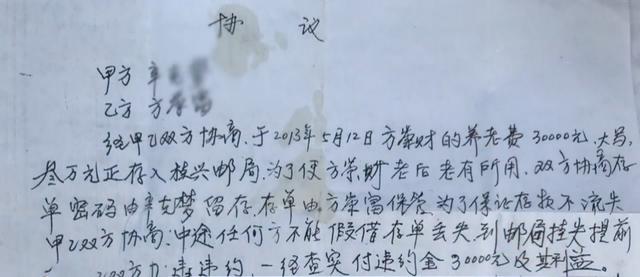 协 议
甲方 辛
乙方 方
经甲乙双方协商,于2013年5月12日方崇财的养老费30000元,大写,
叁万元正存入 兴邮局,为了使方崇财老后老有所用,双方协商存
单密码由辛克梦留存,存单由方崇富保管,为了保证存款不流失
甲乙双方协商,中途任何方不能假借存单丢失,到邮局挂失提前
违约,一经查实付违约金30000元及其利益。